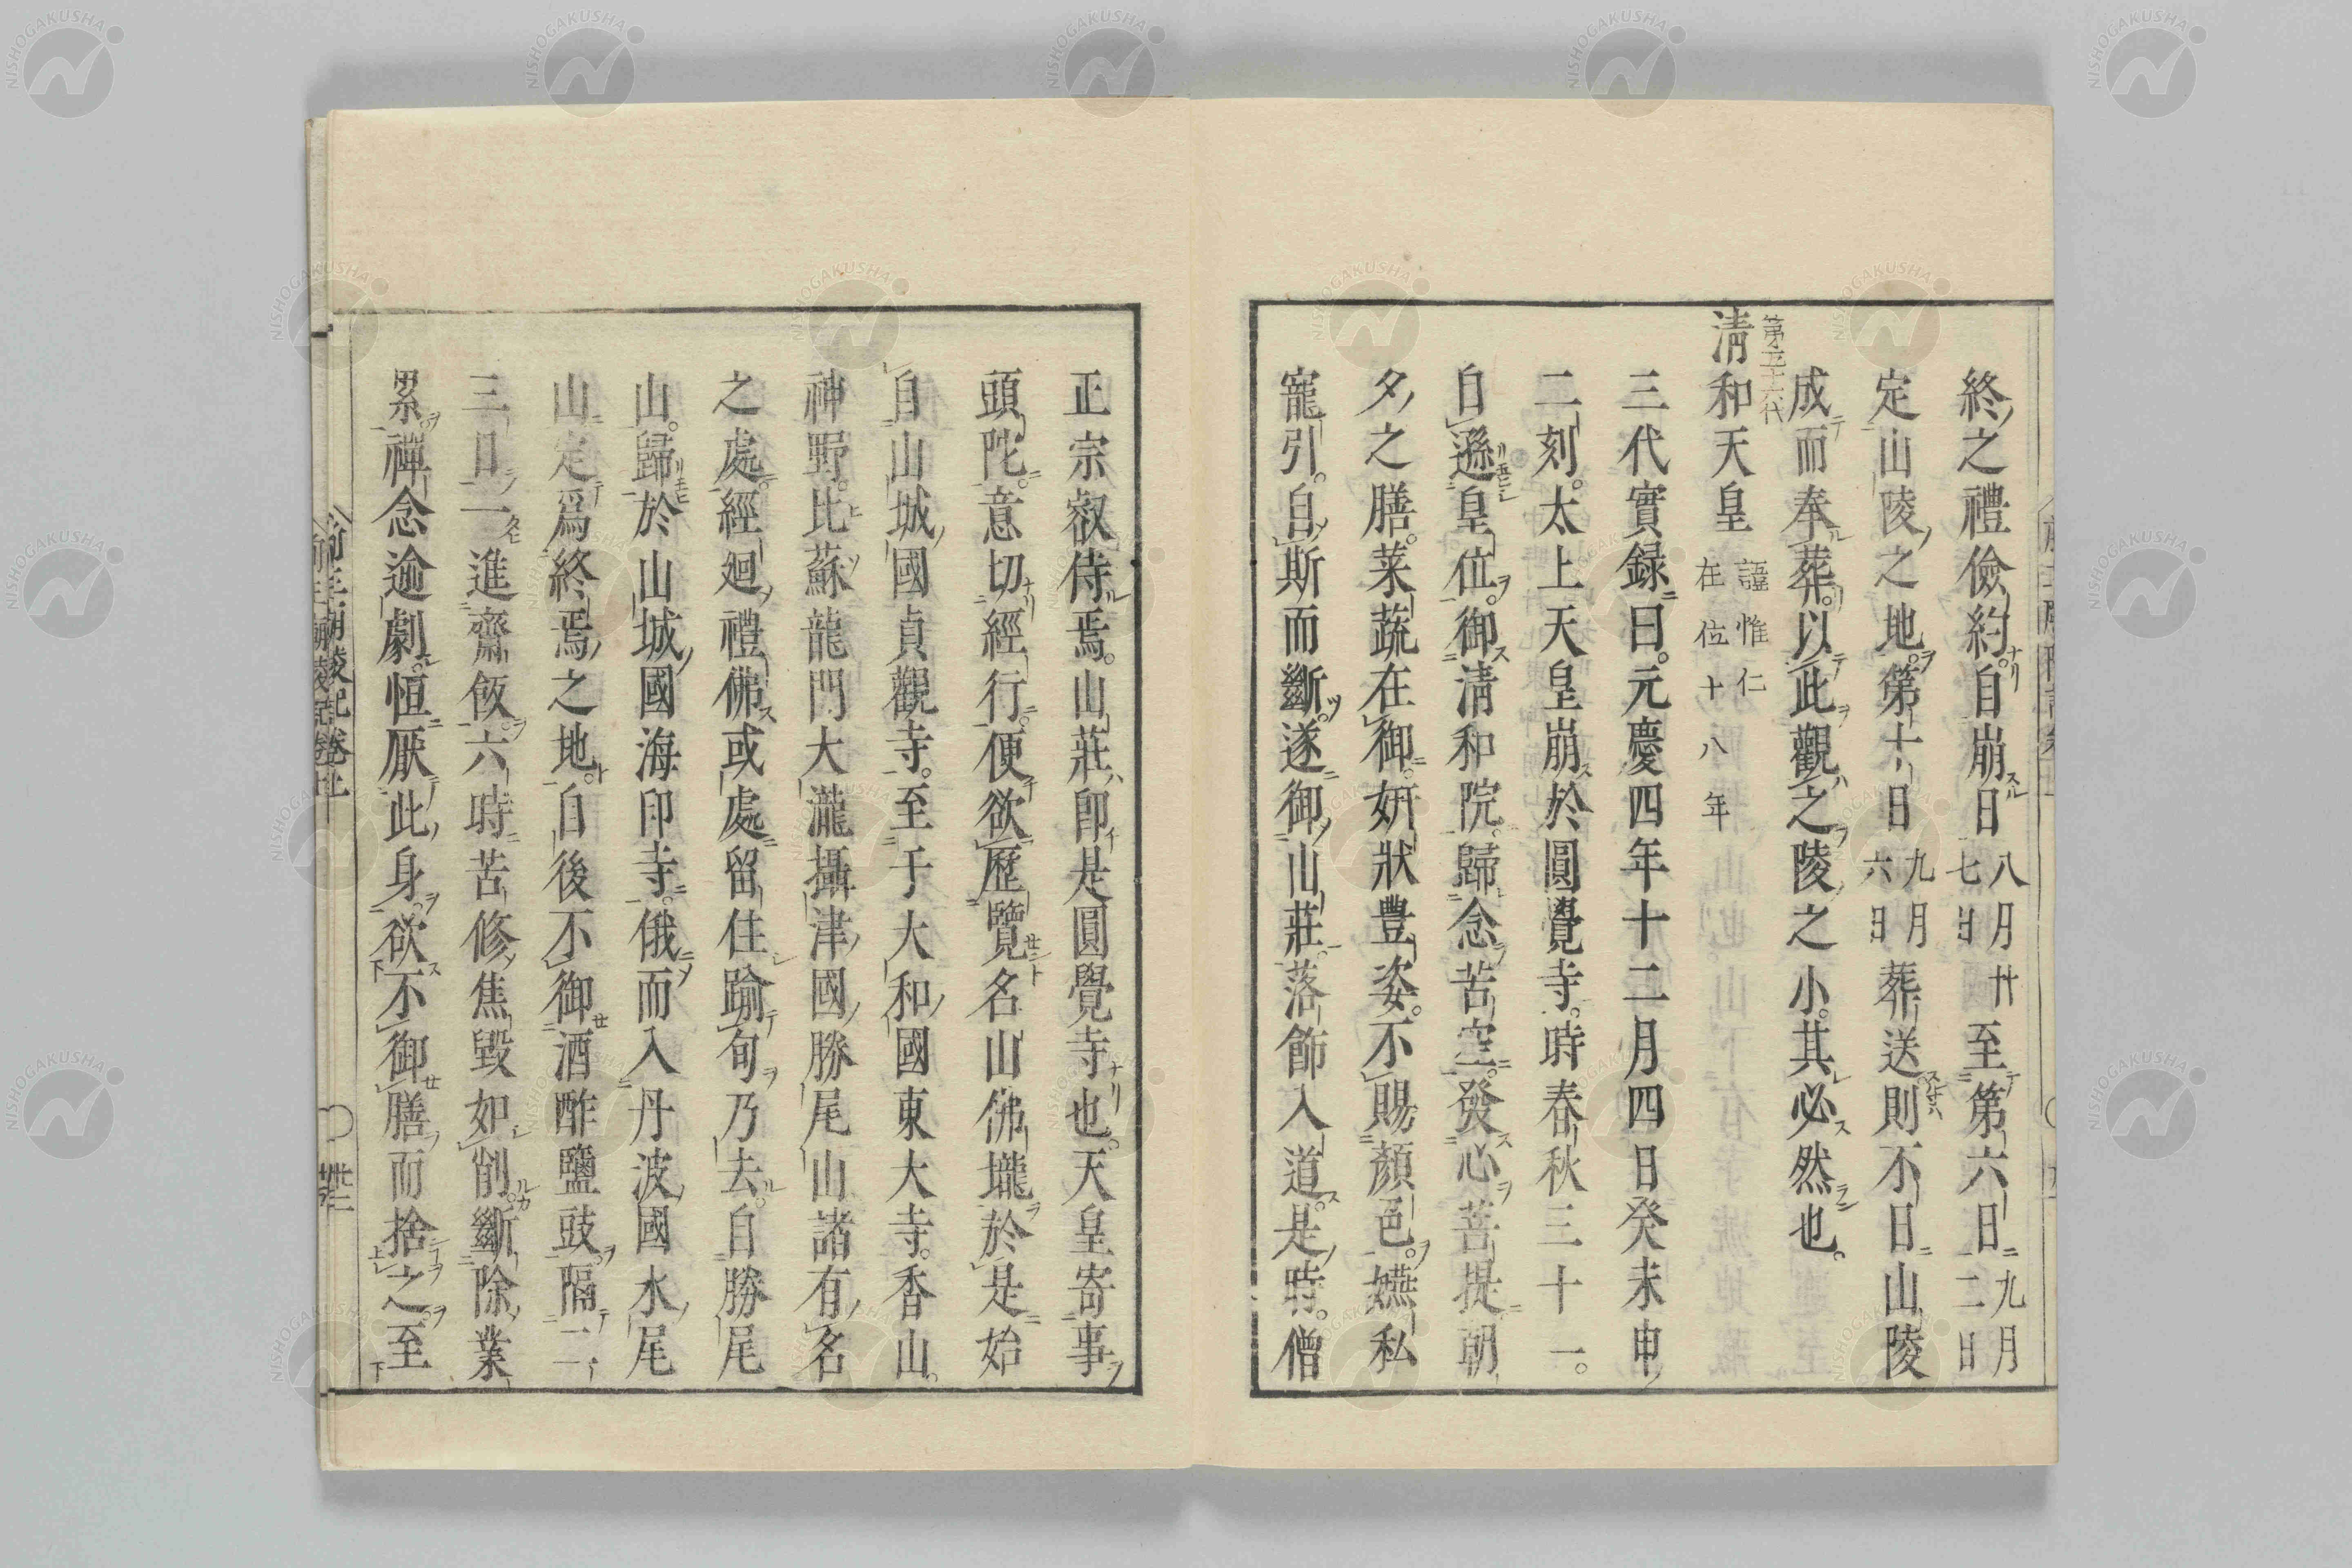 終之禮儉約自崩日八月廿七日至第六日九月二日
定山陵之地第十日九月六日葬送則不日山陵
成而奉葬以此觀之陵之小其必然也
第五十六代
清和天皇諱惟仁在位十八年
三代實録曰元慶四年十二月四日癸未申
二刻太上天皇崩於圓覺寺時春秋三十一
自遜皇位御清和院歸念苦空發心菩提朝
夕之膳菜蔬在御妍狀豊姿不賜顔色嬿私
寵引自斯而斷遂御山莊落飾入道是時僧
正宗叡侍焉山莊即是圓覺寺也天皇寄事
頭陀意切經行便欲歷覽名山佛壠於是始
自山城國貞觀寺至于大和國東大寺香山
神野比蘇龍門大瀧攝津國勝尾山諸有名
之處經廻禮佛或處留住踰旬乃去自勝尾
山歸於山城國海印寺俄而入丹波國水尾
山定爲終焉之地自後不御酒酢鹽豉隔二
三日一進齋飯六時苦修焦毀如削斷除業
累禪念逾劇恒厭此身欲不御膳而捨之至
前王廟陵記卷上 〇 廿二